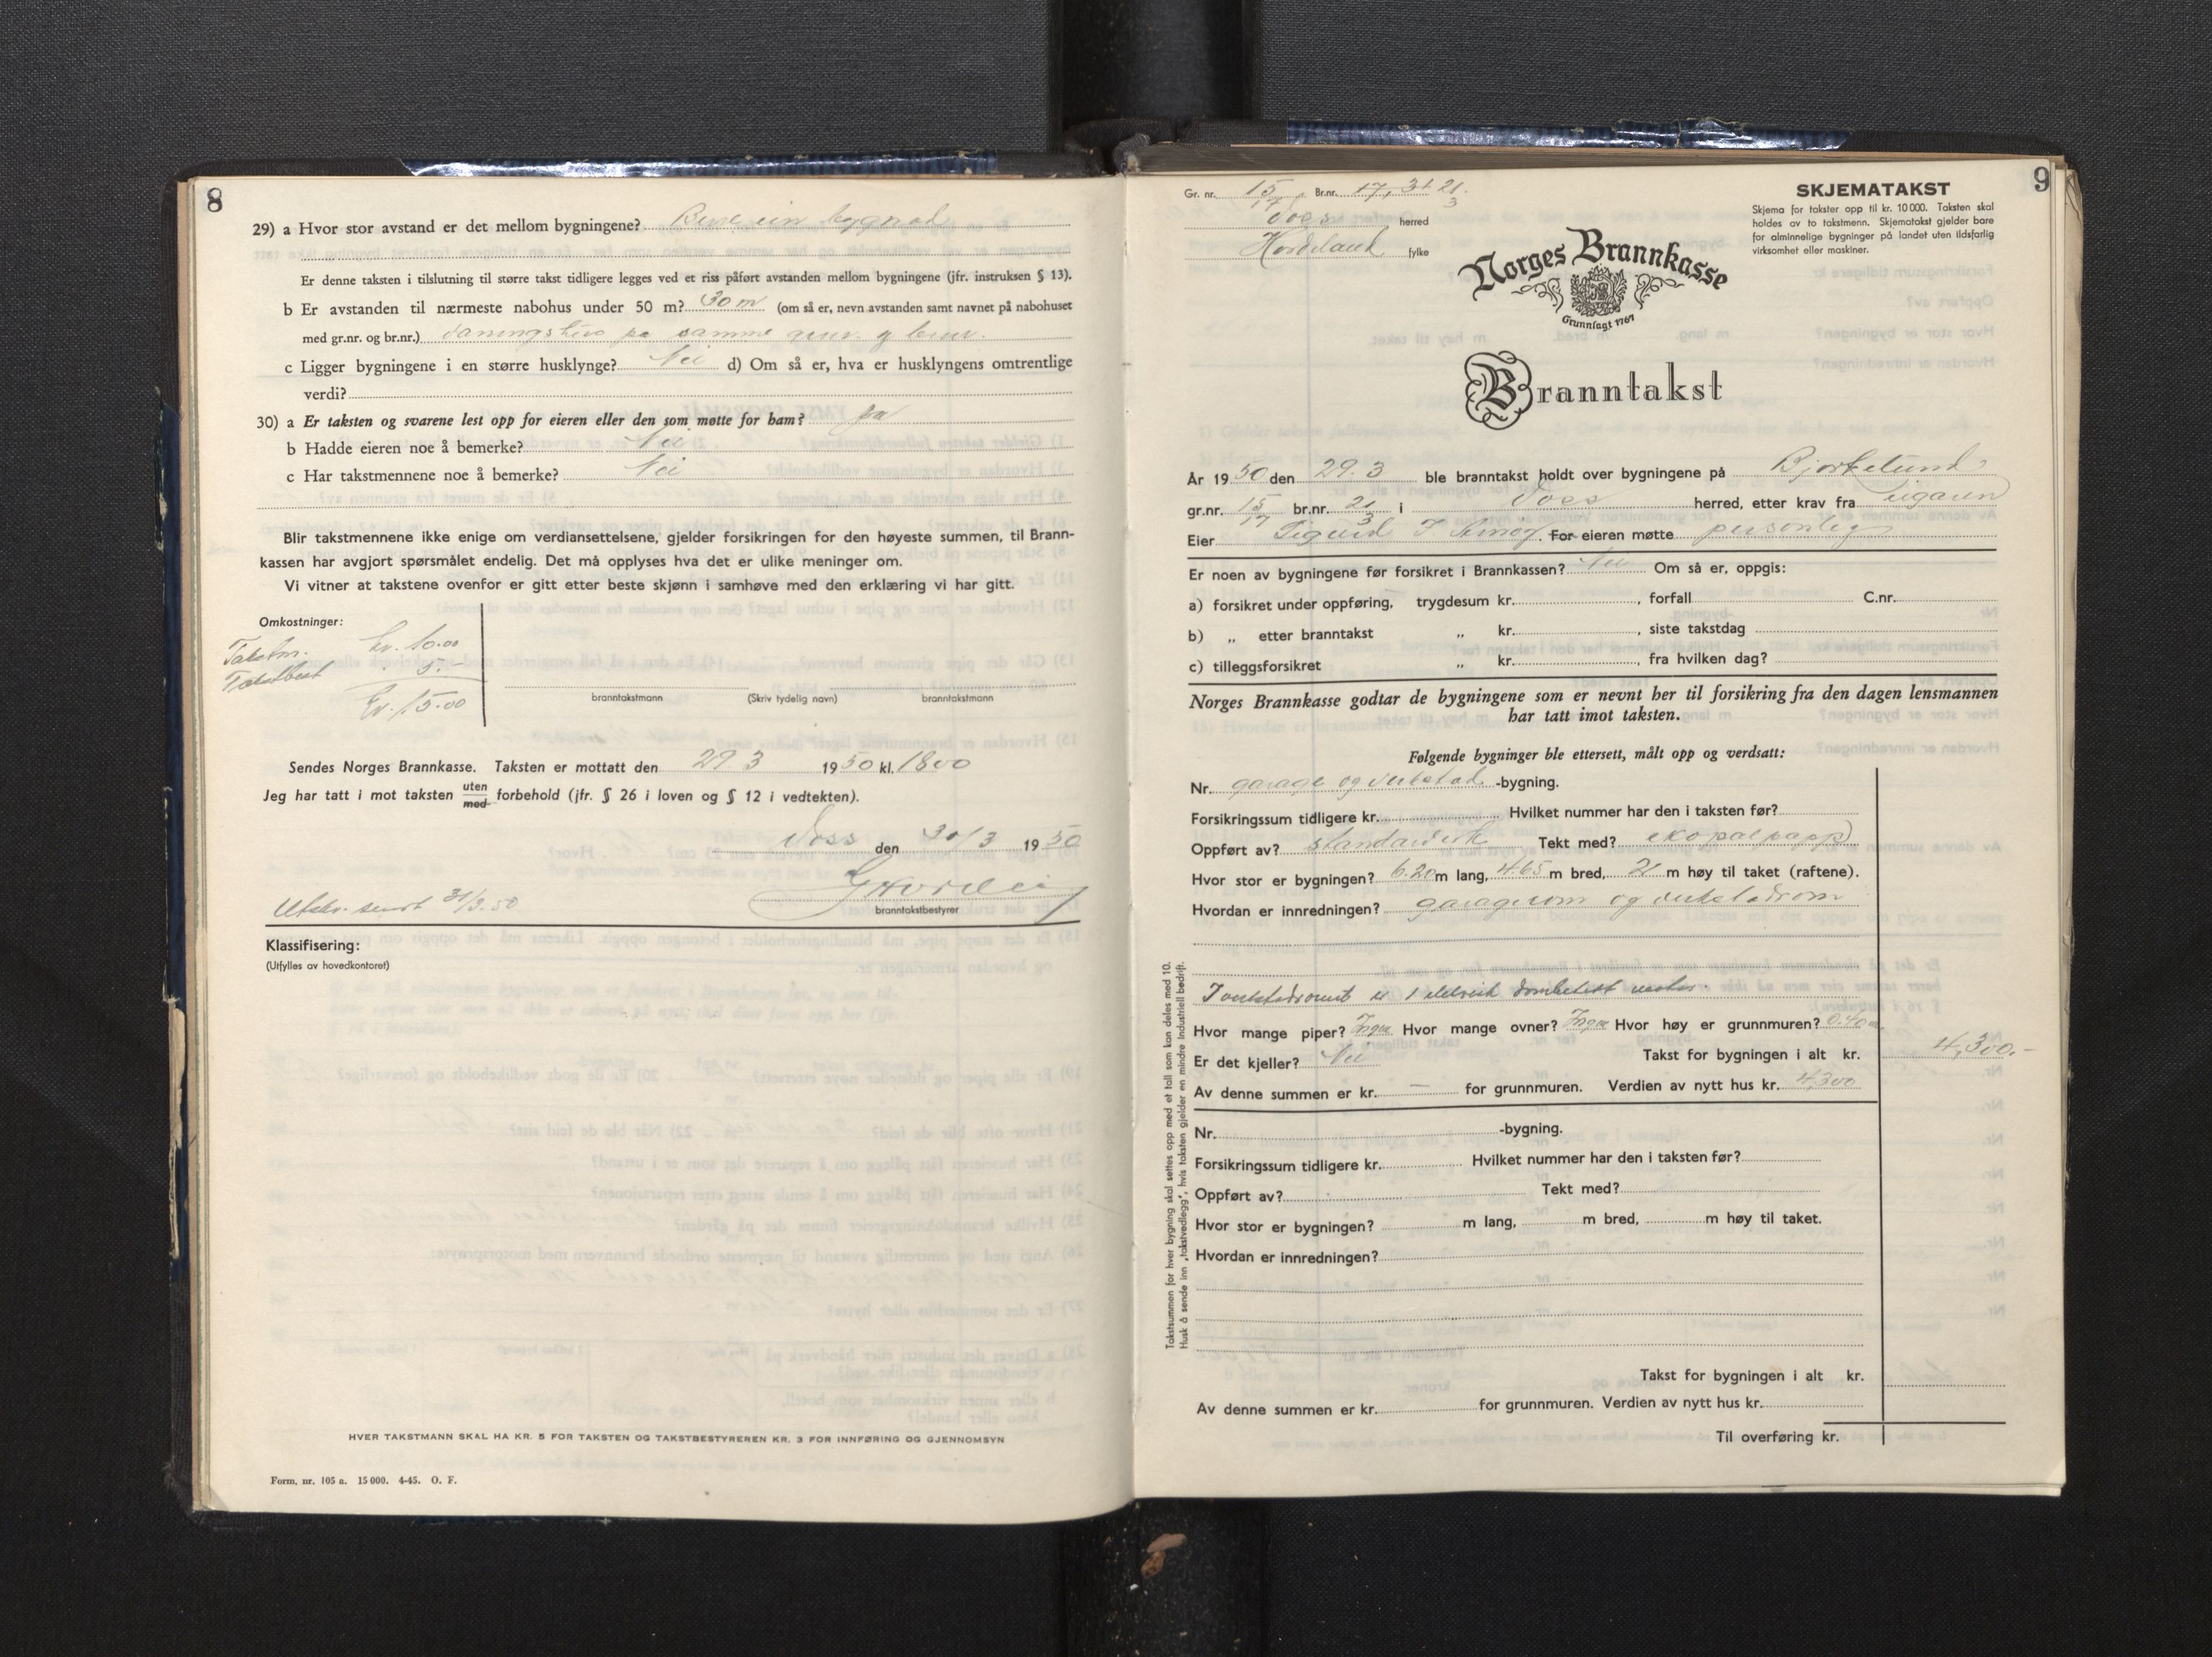 8
29) a Hvor stor avstand er det mellom bygningene? Bere ein bygnad
Er denne taksten i tilslutning til større takst tidligere legges ved et riss påført avstanden mellom bygningene (jfr. instruksen § 13).
b Er avstanden til nærmeste nabohus under 50 m? 30 m (om så er, nevn avstanden samt navnet på nabohuset
med gr.nr. og br.nr.) våningshus på samme gnr. og bnr.
c Ligger bygningene i en større husklynge? Nei d) Om så er, hva er husklyngens omtrentlige
verdi?
30) a Er taksten og svarene lest opp for eieren eller den som møtte for ham? Ja
b Hadde eieren noe å bemerke? Nei
c Har takstmennene noe å bemerke? Nei
Blir takstmennene ikke enige om verdiansettelsene, gjelder forsikringen for den høyeste summen, til Brann-
kassen har avgjort spørsmålet endelig. Det må opplyses hva det er ulike meninger om.
Vi vitner at takstene ovenfor er gitt etter beste skjønn i samhøve med den erklæring vi har gitt.
Omkostninger:
Takstm. kr. 10.00
Takstbest 5.-
Kr. 15.00
branntakstmann (Skriv tydelig navn) branntakstmann
Sendes Norges Brannkasse. Taksten er mottatt den 29. 3 1950 kl. 1800
Jeg har tatt i mot taksten uten
med forbehold (jfr. § 26 i loven og § 12 i vedtekten).
Voss den 30/3 1950
branntakstbestyrer
Utskr. sendt 31/3.50
Klassifisering:
(Utfylles av hovedkontoret)
HVER TAKSTMANN SKAL HA KR. 5 FOR TAKSTEN OG TAKSTBESTYREREN KR. 3 FOR INNFØRING OG GJENNOMSYN
Form. nr. 105 a. 15 000. 4-45. O. F.
9
Gr. nr. 15, 17 Br.nr. 17, 31 21. 3
Voss herred
Hordaland fylke
SKJEMATAKST
Skjema for takster opp til kr. 10 000. Taksten skal
holdes av to takstmenn. Skjematakst gjelder bare
for alminnelige bygninger på landet uten ildsfarlig
virksomhet eller maskiner.
Norges Brannkasse
Grunnlagt 1767
Branntakst
År 1950 den 29. 3 ble branntakst holdt over bygningene på Bjørkelund
gr.nr. 15 17 br.nr. 21 3 i Voss herred, etter krav fra eigaren
Eier Sigurd J For eieren møtte personleg
Er noen av bygningene før forsikret i Brannkassen? Nei Om så er, oppgis:
a) forsikret under oppføring, trygdesum kr. , forfall C.nr.
b) „ etter branntakst „ kr. , siste takstdag
c) tilleggsforsikret „ kr. , fra hvilken dag?
Norges Brannkasse godtar de bygningene som er nevnt her til forsikring fra den dagen lensmannen
har tatt imot taksten.
Følgende bygninger ble ettersett, målt opp og verdsatt:
Nr. garage og verkstad -bygning.
Forsikringssum tidligere kr. Hvilket nummer har den i taksten før?
Oppført av? standarverk Tekt med? ekopalpapp
Hvor stor er bygningen? 6.20 m lang, 4.65 m bred, 2 m høy til taket (raftene).
Hvordan er innredningen? garagerom og verkstadrom
I verkstadromet er 1 elektrisk
Hvor mange piper? Ingen Hvor mange ovner? Ingen Hvor høy er grunnmuren? 0.40 m
Er det kjeller? Nei Takst for bygningen i alt kr. 4,300.-
Av denne summen er kr. — for grunnmuren. Verdien av nytt hus kr. 4,300
Nr. -bygning.
Forsikringssum tidligere kr. Hvilket nummer har den i taksten før?
Oppført av? Tekt med?
Hvor stor er bygningen? m lang, m bred, m høy til taket.
Hvordan er innredningen?
Takst for bygningen i alt kr.
Av denne summen er kr. for grunnmuren. Verdien av nytt hus kr.
Til overføring kr.
Takstsummen for hver bygning skal settes opp med et tall som kan deles med 10.
Husk å sende inn „takstvedlegg", hvis taksten gjelder en mindre industriell bedrift.